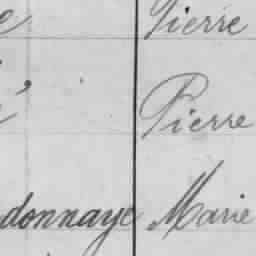 e Pierre
é Pierre
donnaye Marie